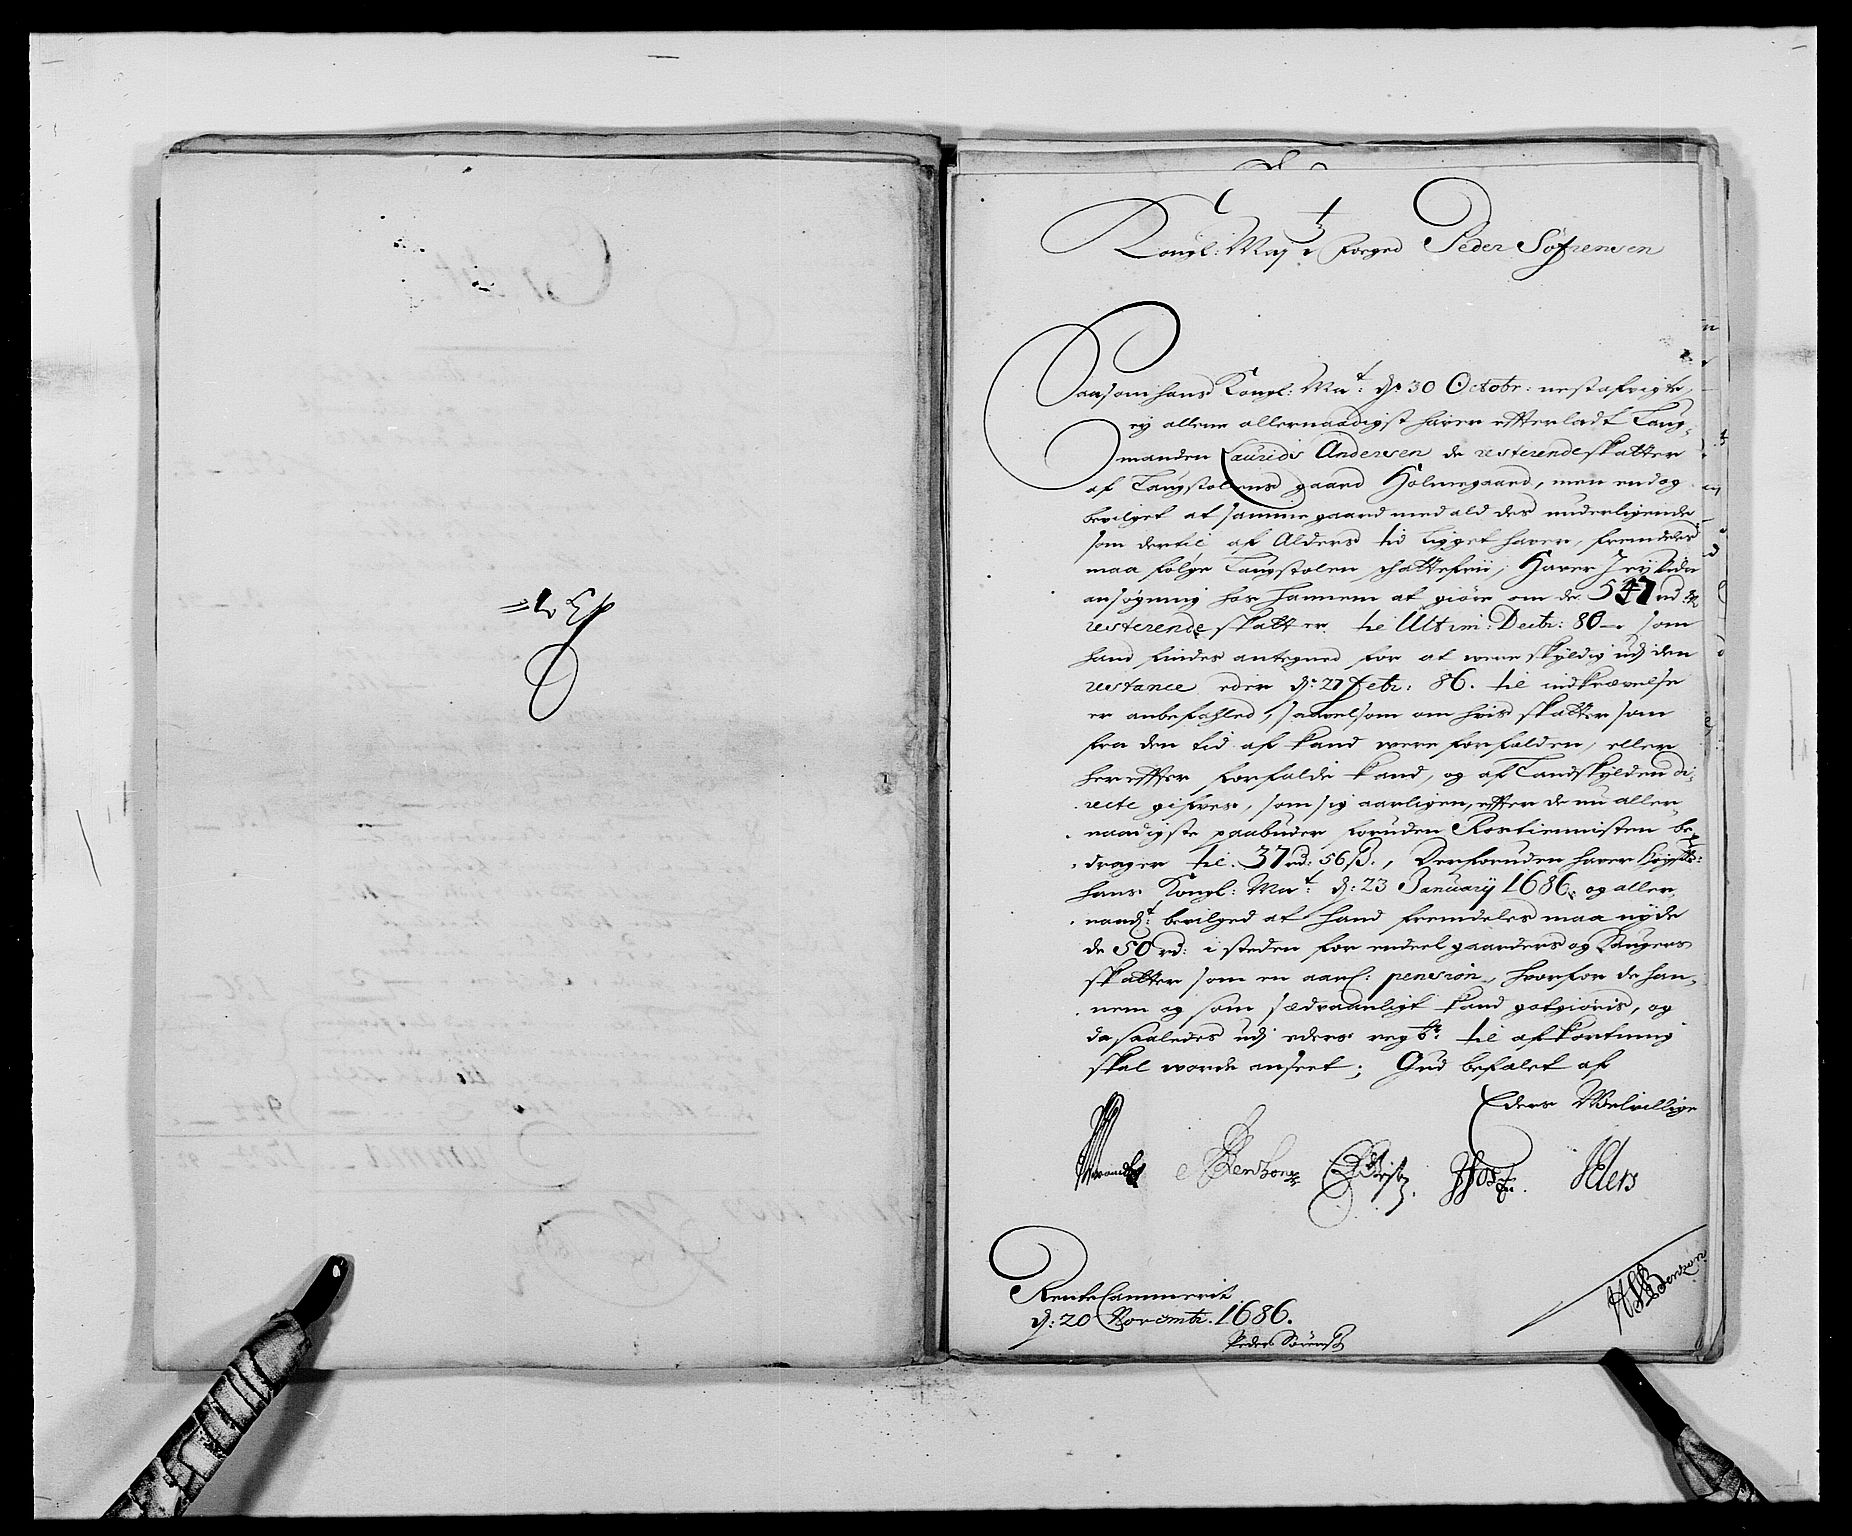 Kongl: May:ᵗˢ foeged Peder Søfrensen
Saasom hans Kongl: Maᵗ: d: 30 Octobr: nest afvigte,
ey allene allernaadigst hafver efterladt Laug-
manden Laurids Andersen de resterende skatter
af Laugstolens gaard Holmegaard, men endog
bevilget at samme gaard med ald des underligende
som dertil af Alders tid ligget hafver, fremdeles
maa følge Laugstolen schattefrii; Hafver I ey videre
ansøgning hos hannem at giøre om de 547 rd
resterende skatter til Ultim: Decbr: 80 som
hand findes antegned for at were skyldig udj den
restance eder d: 27 Febr: 86. til indkrævelse
er anbefahled, saavelsom om hvis skatter som
fra den tid af kand were forfalden, eller
herefter forfalde kand, og af Landskylden di-
recte gifves, som sig aarligen, efter de nu aller-
naadigste paabuder foruden Rostieninsten be-
drager til 37 rd: 56 ß., Derforuden hafver høystbᵗᵉ:
hans Kongl: Maᵗ: d: 23 January 1686. og aller-
naadᵗ: bevilged at hand fremdeles maa nyde
de 50 rd: i steden for endeel gaarders og
skatter som en aarl: pension, hvorfor de han-
nem og som sædvaanligt kand godtgiøris, og
da saaledes udj eders regᵇ: til afkortning
skal worde anseet; Gud befalet af
Eders Welvillige
Brandt
P Elers
RenteCammerit
d: 20 Novembr. 1686.
Peder Sørens